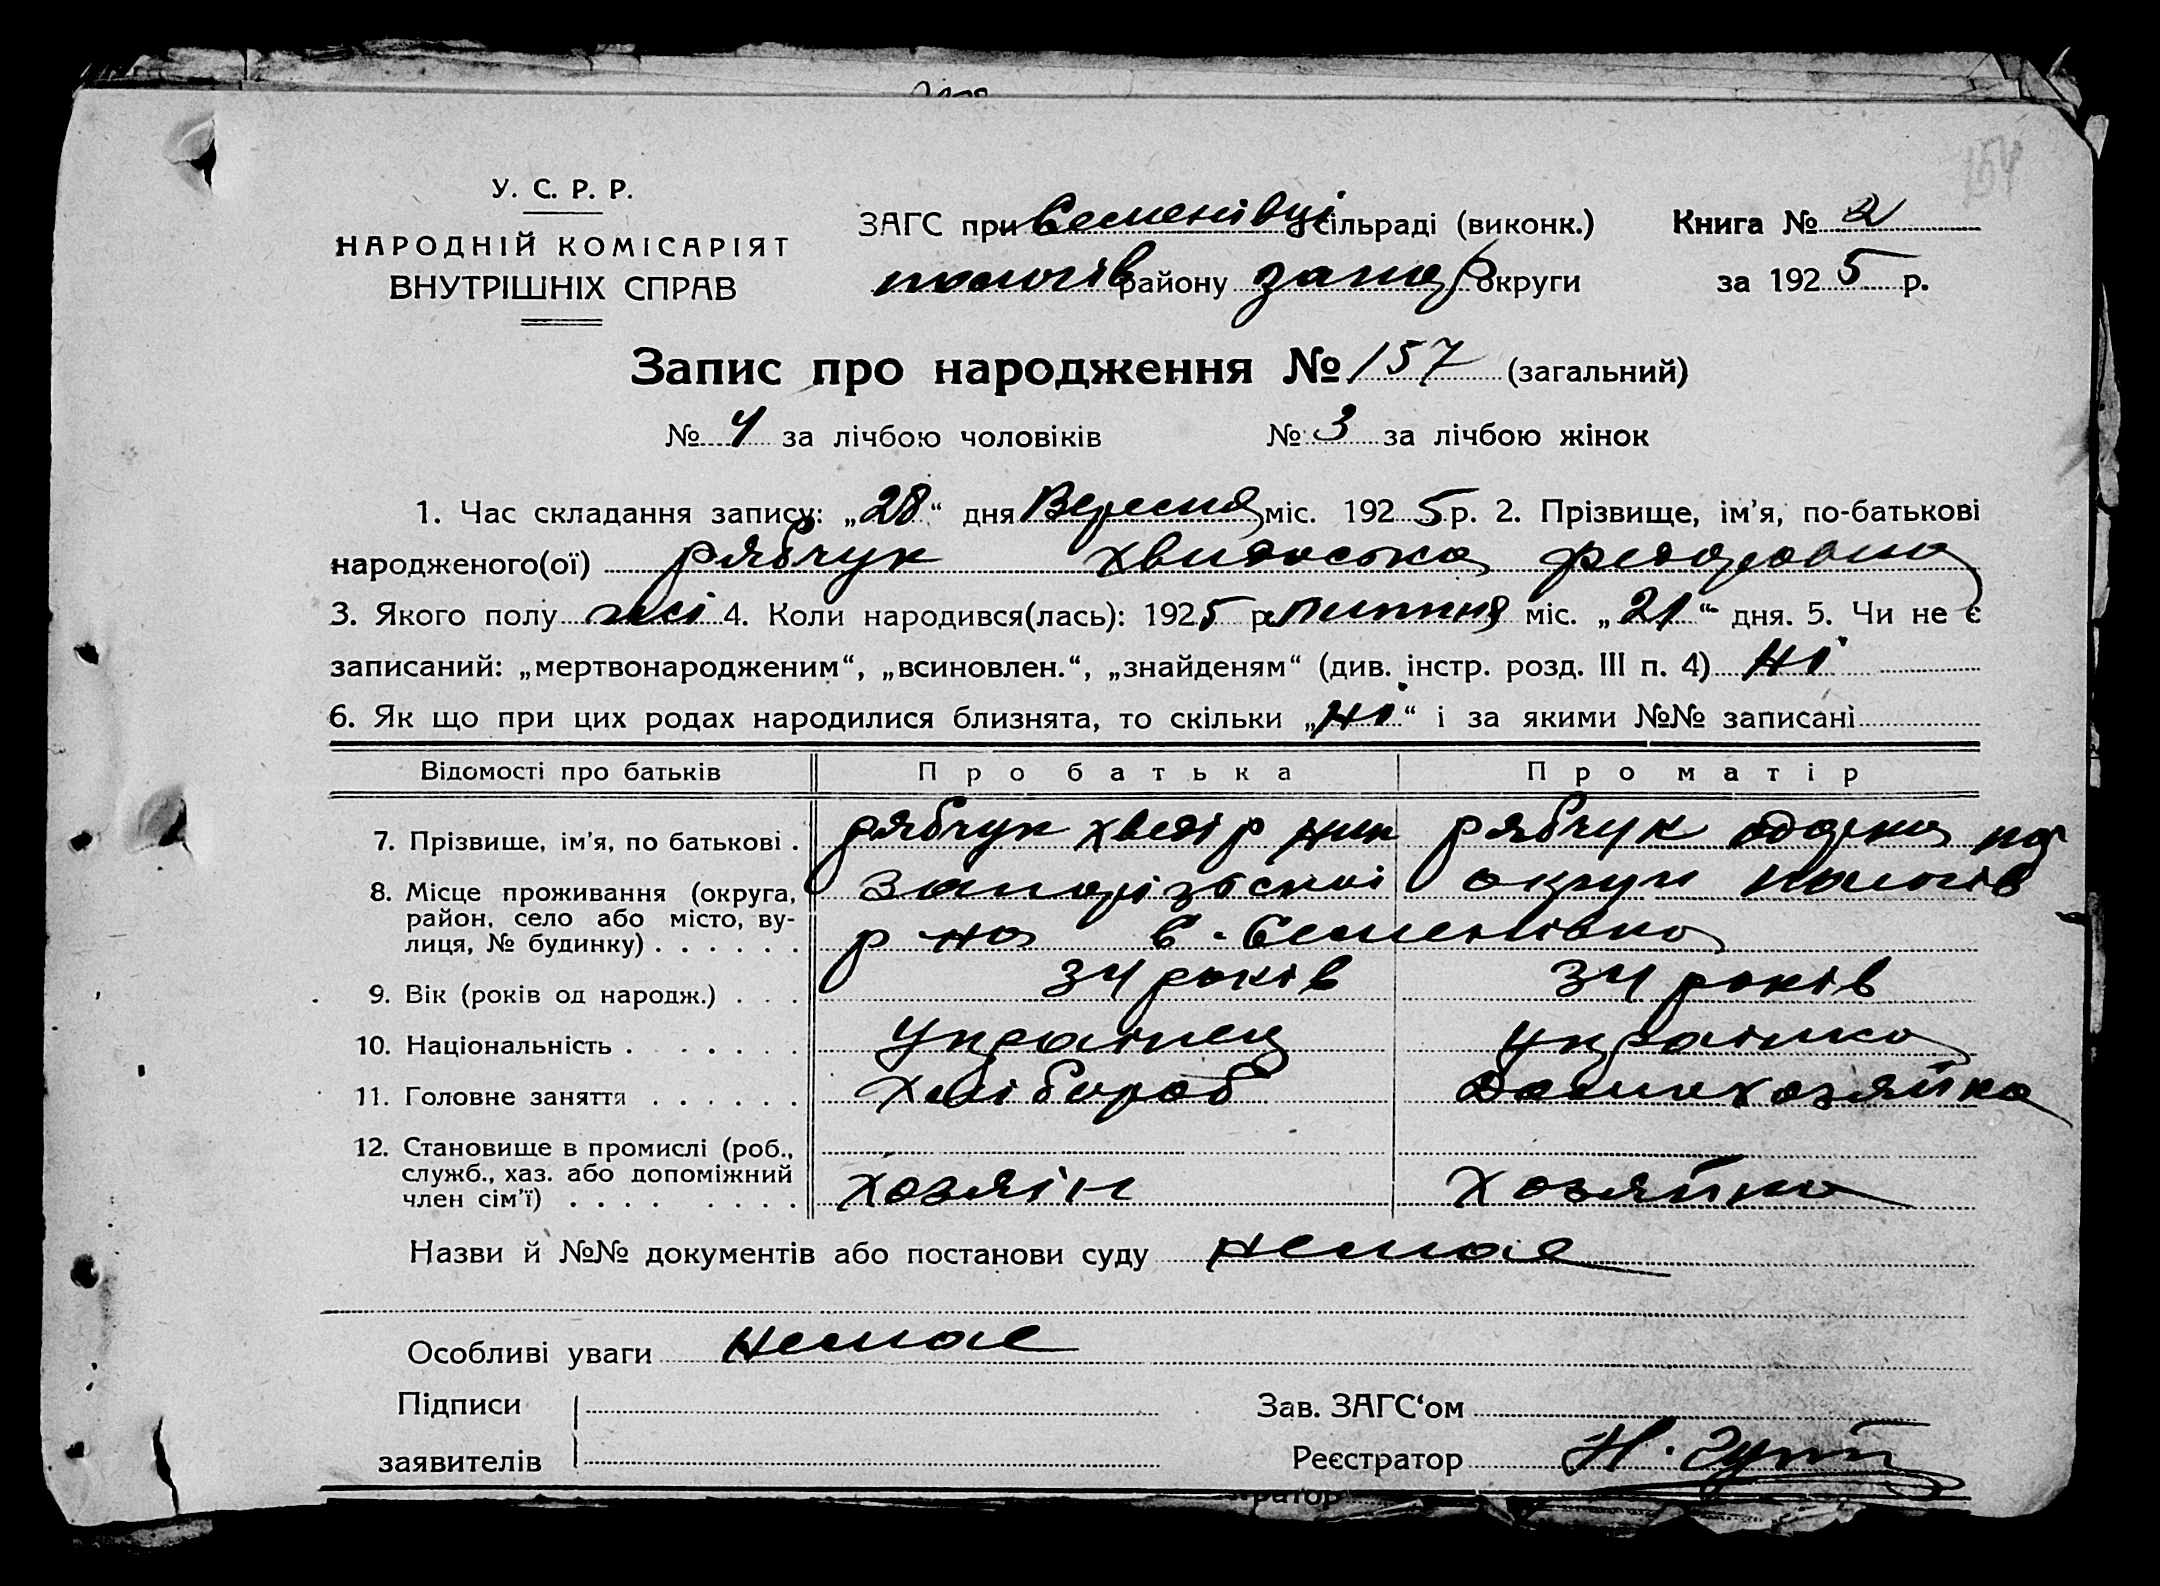 154
У. С. Р. Р.
НАРОДНІЙ КОМІСАРІЯТ
ВНУТРІШНІХ СПРАВ
ЗАГС при Семенівці сільраді (виконк.)
пологів району запор округи
Книга № 2
за 1925 р.
Запис про народження № 157 (загальний)
№ 4 за лічбою чоловіків № 3 за лічбою жінок
1. Час складання запису: „28“ дня Вересня міс. 1925 р. 2. Прізвище, ім'я, по-батькові
народженого(ої) рябчук хвидоська федоровна
3. Якого полу жі 4. Коли народився(лась): 1925 р. липня міс. „21“ дня. 5. Чи не є
записаний: „мертвонародженим“, „всиновлен.“, „знайденям“ (див. інстр. розд. III п. 4) Ні
6. Як що при цих родах народилися близнята, то скільки „Ні“ і за якими №№ записані
Відомості про батьків Про батька Про матір
7. Прізвище, ім'я, по батькові . рябчук хведір ник рябчук
8. Місце проживання (округа, Запорізської округи пологів
район, село або місто, ву-
лиця, № будинку) . . . . . . р на с. Семенівка
9. Вік (років од народж.) . . . 34 років 34 років
10. Національність . . . . . . . Українец Українка
11. Головне заняття . . . . . . Хлібороб Домохозяйка
12. Становище в промислі (роб.,
служб., хаз. або допоміжний
член сім'ї) . . . . . . . . хозяін Хозяйка
Назви й №№ документів або постанови суду немає
Особливі уваги немає
Підписи
заявителів
Зав. ЗАГС‘ом
Реєстратор Н.